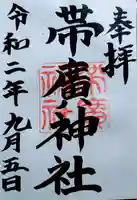 奉拝
帯廣神社
令和二年九月五日